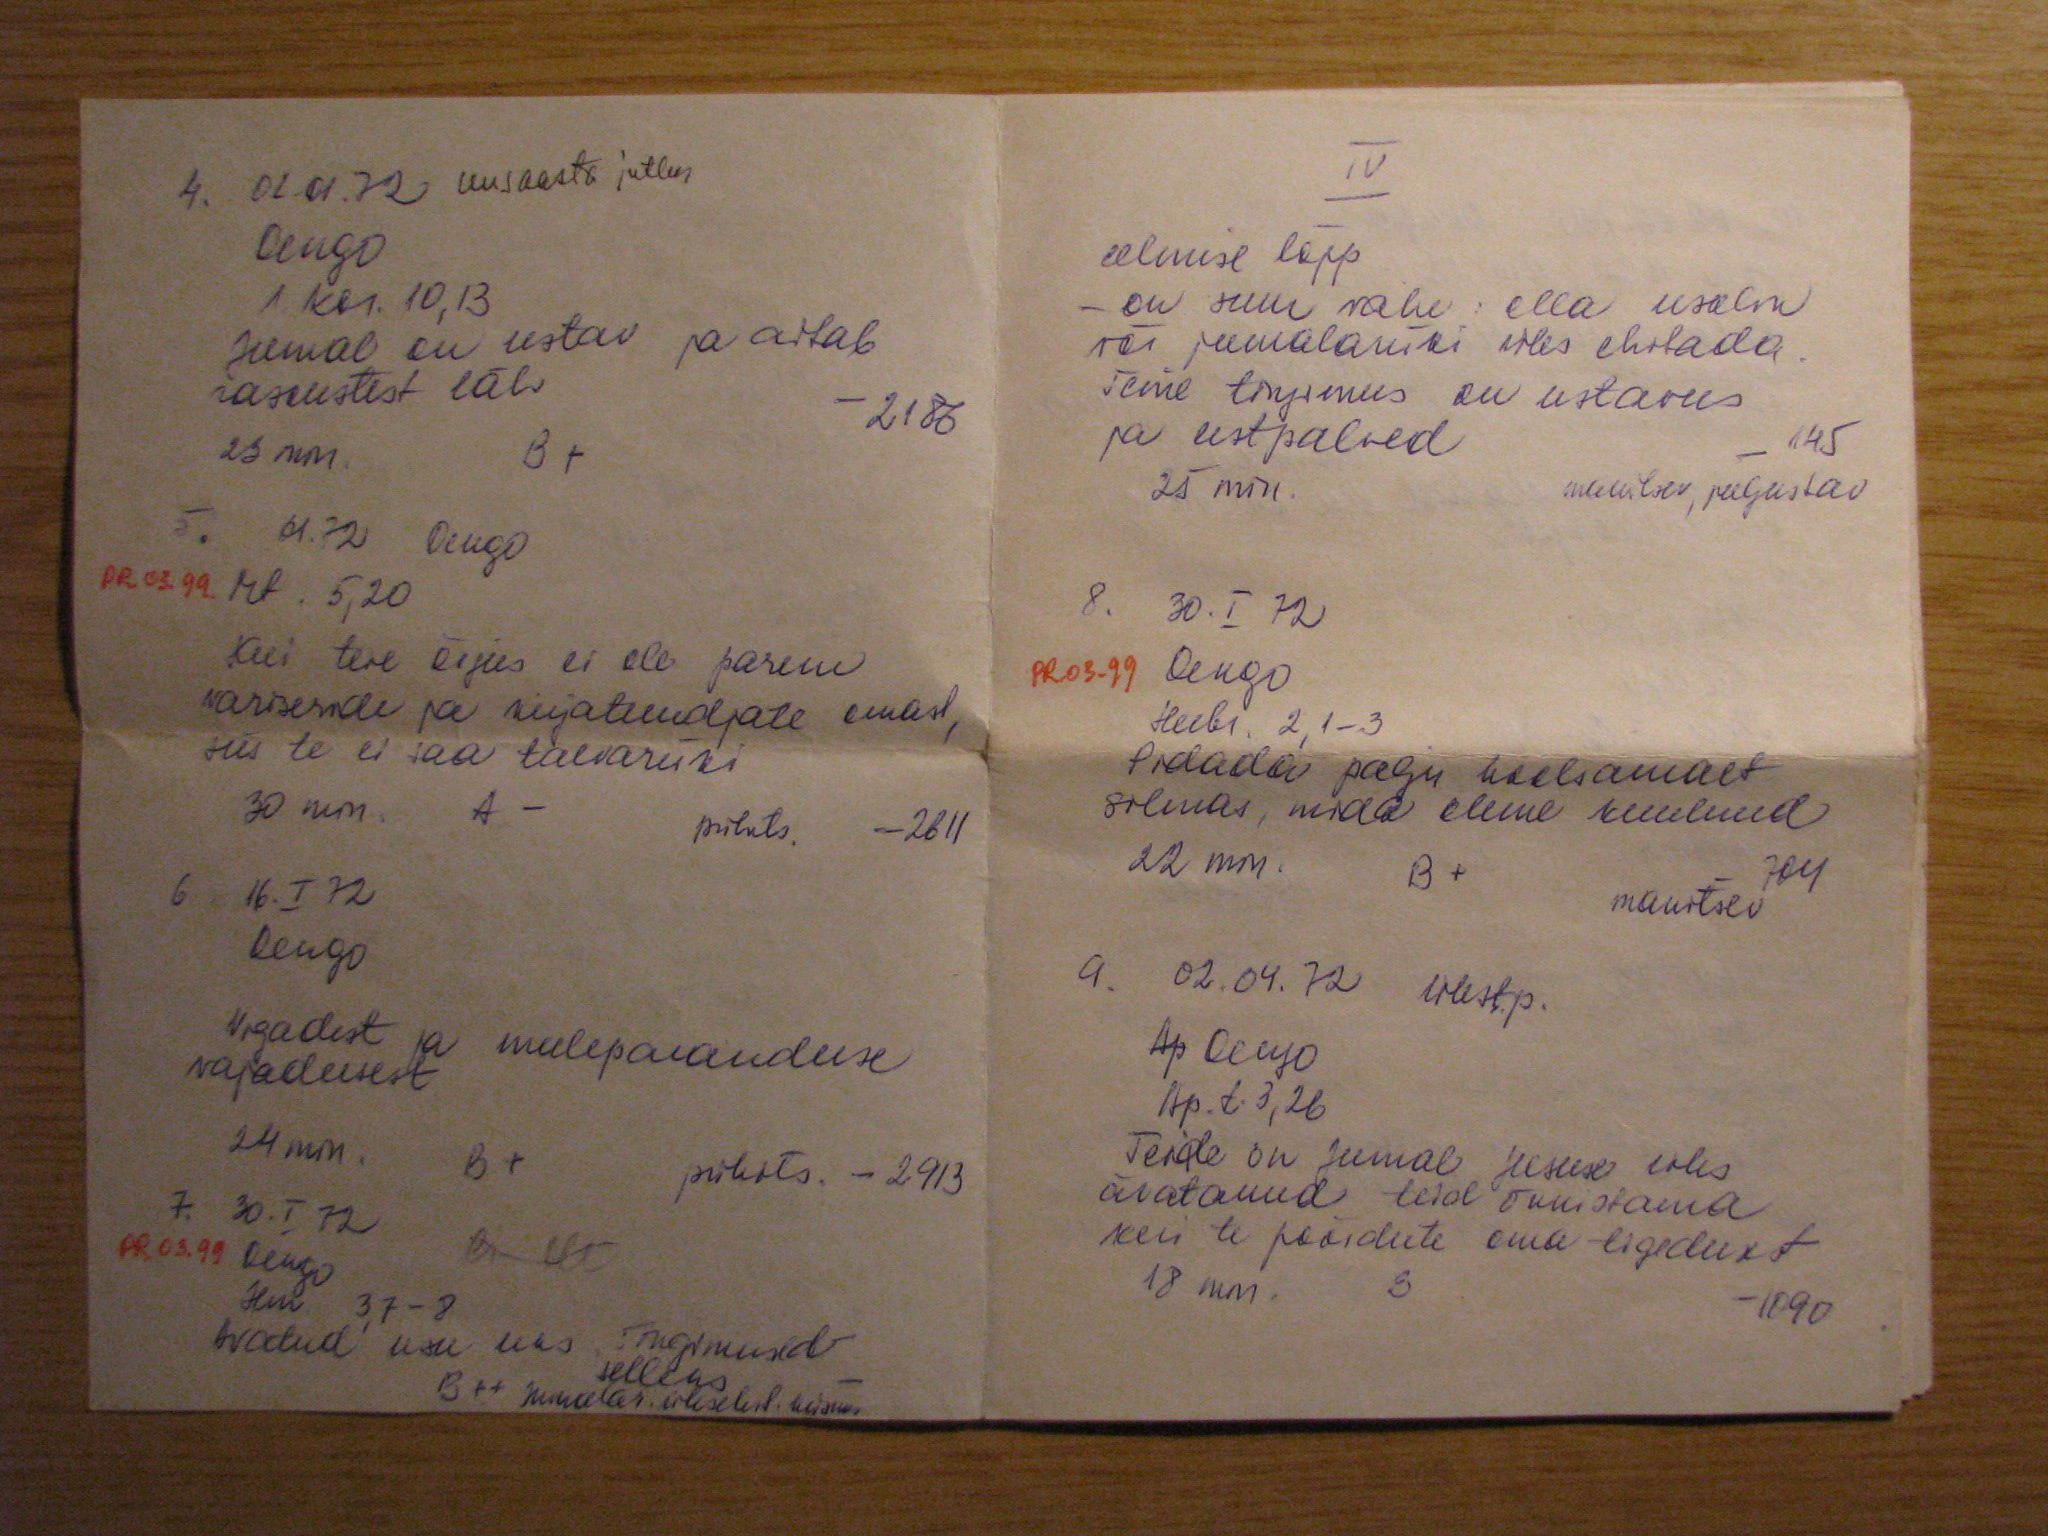 4. 01.01.72 uusaasta jutlus
Oengo
1. Kor. 10,13
Jumal on ustav ja aitab
raskustest läbi
– 2186
23 min. B +
5. 01.72 Oengo
PR 03.99. Mt. 5,20
Kui teie õigus ei ole parem
variseride ja kirjatundjate omast,
siis te ei saa taevariiki
30 min. A – pühits. – 2611
6 16. I 72
Oengo
Vigadest ja meeleparanduse
vajadusest
24 min. B + pühits. – 2913
7. 30. I 72
PR 03.99 Oengo
Ilm. 3,7–8
Avatud uks. Tingimused
selleks –
B ++ jumalar. ülesehit.
IV
eelmise lõpp
– on suur vahe: olla usklik
või jumalariiki üles ehitada.
Teine tingimus on ustavus
ja eestpalved
– 145
25 min. manitsev, julgustav
8. 30. I 72
PR 03-99 Oengo
Heebr. 2,1–3
Pidada palju hoolsamalt
silmas, mida oleme kuulnud
22 min. B + – 704
manitsev
9. 02.04.72 ülest.p.
Ap Oengo
Ap. t. 3,26
Teile on Jumal Jeesuse üles
äratanud teid õnnistama
kui te pöördute oma tigedusest
18 min. B
– 1090